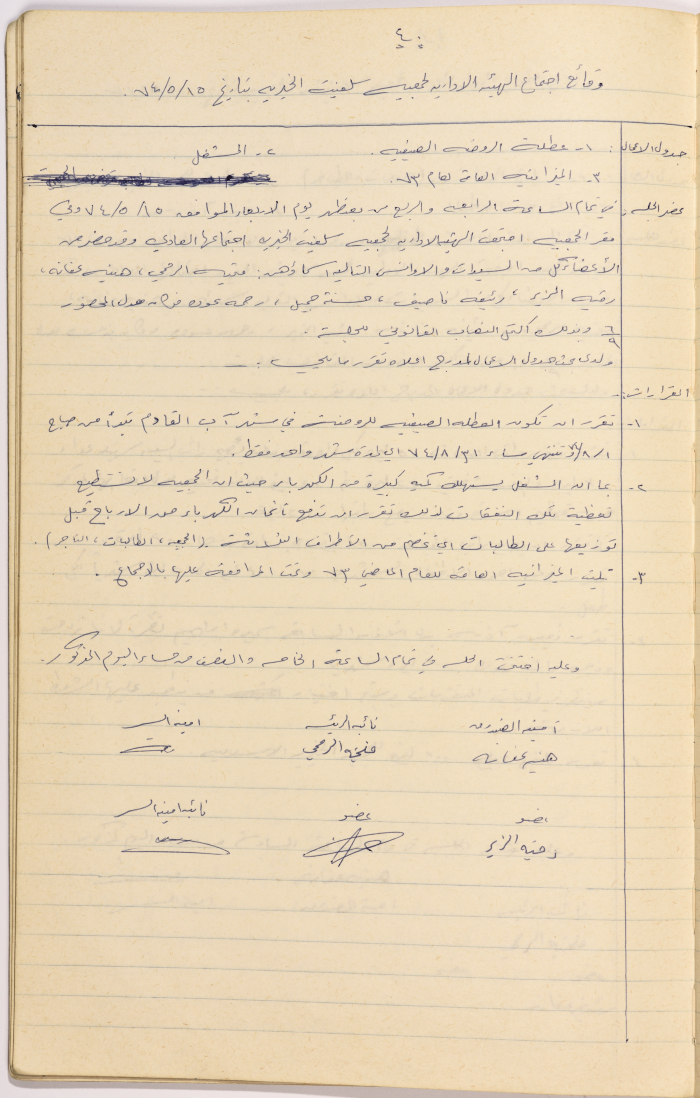 ٤٠
وقائع اجتماع الهيئه الاداريه لجمعيه سلفيت الخيريه بتاريخ ٧٤/٥/١٥.
جدول الاعمال : ١- عطلة الروضه الصيفيه. ٢- المشغل
٣- الميزانيه العامة لعام ٧٣.
محضر الجلسه : في تمام الساعة الرابعه والربع من بعد ظهر يوم الاربعاء الموافق ٧٤/٥/١٥ وفي
مقر الجمعيه اجتمعت الهيئه الاداريه لجمعيه سلفيت الخيريه اجتماعها العادي وقد حضر من
الأعضاء كل من السيدات والاوانس التالية اسماؤهن: فتحيه الرمحي، هنيه عفانه،
رقيه الزير، رئيفه ناصيف، حسنة جميل، رحمه عوده فكان معدل الحضور
٦/٩ وبذلك اكتمل النصاب القانوني للجلسة.
ولدى بحث جدول الاعمال المدرج اعلاه تقرر ما يلي :ـ
القرارات :
١- تقرر ان تكون العطله الصيفيه للروضة في شهر آب القادم تبدأ من صباح
٨/١ وتنتهي مساء ٧٤/٨/٣١ اي لمدة شهر واحد فقط.
٢- بما ان المشغل يستهلك كميه كبيرة من الكهرباء حيث ان الجمعيه لا تستطيع
تغطية تلك النفقات لذلك تقرر ان تدفع أثمان الكهرباء من الارباح قبل
توزيعها على الطالبات اي تخصم من الأطراف الثلاثة (الجمعيه، الطالبات، التاجر).
٣- تليت الميزانيه العامه للعام الماضي ٧٣ وتمت الموافقة عليها بالاجماع.
وعليه اختتمت الجلسه في تمام الساعة الخامسه والنصف من مساء اليوم المذكور.
أمينة الصندوق نائبة الرئيسه امينة السر
هنيه عفانه فتحيه الرمحي
عضو عضو نائبة امينة السر
رقيه الزير